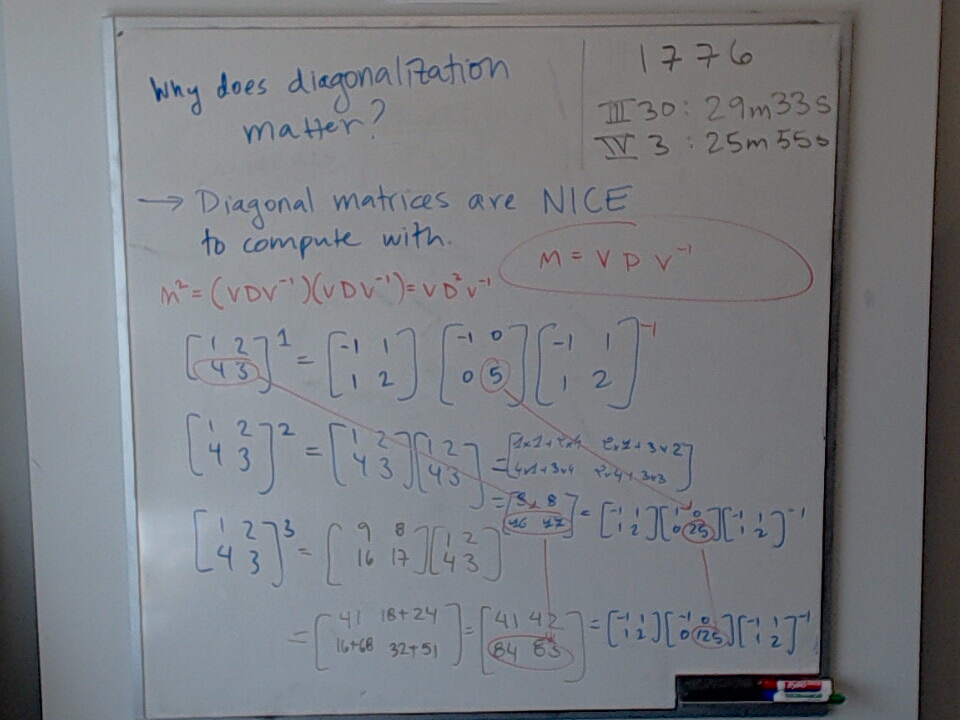 Why does diagonalization
matter?
1776
III 30: 29m33s
IV 3: 25m55s
→ Diagonal matrices are NICE
to compute with.
M = V D V⁻¹
M² = (VDV⁻¹)(VDV⁻¹) = VD²V⁻¹
[1 2; 4 3]¹ = [-1 1; 1 2] [-1 0; 0 5] [-1 1; 1 2]⁻¹
[1 2; 4 3]² = [1 2; 4 3][1 2; 4 3] = [1×1+2×4 2×1+3×2; 4×1+3×4 2×4+3×3]
= [9 8; 16 17] = [-1 1; 1 2][1 0; 0 25][-1 1; 1 2]⁻¹
[1 2; 4 3]³ = [9 8; 16 17][1 2; 4 3]
= [41 18+24; 16+68 32+51] = [41 42; 84 83] = [-1 1; 1 2][-1 0; 0 125][-1 1; 1 2]⁻¹